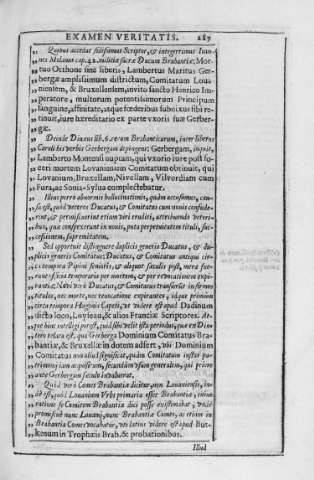 EXAMEN VERITATIS. 287
„ Quibus accedat fidissimus Scriptor, & integerrimus Ioan-
„ nes Molanus cap. 42. militiæ sacræ Ducum Brabantiæ; Mor-
„ tuo Otthone sine liberis, Lambertus Maritus Ger-
„ bergæ amplissimum districtum, Comitatum Loua-
„ niensem, & Bruxellensem, invito sancto Henrico Im-
„ peratore, multorum potentissimorum Principum
„ sanguine, affinitate, itque fœderibus subnixus sibi re-
„ tinuit, iure hæreditario ex parte vxoris suæ Gerber-
„ gæ.
„ Deinde Diuæus lib. 6. rerum Brabanticarum, inter liberos
„ Caroli his verbis Gerbergam depingens: Gerbergam, inquit,
„ Lamberto Montensi nuptam, qui vxorio iure post so-
„ ceri mortem Lovaniensem Comitatum obtinuit, qui
„ Lovanium, Bruxellam, Nivellam, Vilvordiam cum
„ Fura, ac Sonia-Sylua complectebatur.
„ Ideas porro
„ sa est, quod veteres Ducatus, & Comitatus cum novis
„ rint, & permiscuerint etiam viri eruditi, attribuendo veteri-
„ bus, quæ conserverant in novis, puta perpetuitatem tituli, suc-
„ cessionem, supremitatem,
„ Sed oportuit distinguere duplicis generis Ducatus, & du-
„ plicis generis Comitatus: Ducatus, & Comitatus antiqui cir-
„ ca tempora Pipini senioris, & aliquot sæculis post, mera fue-
„ runt officia temporaria per mortem, & per revocationem expi-
„ rantia: Novi verò Ducatus, & Comitatus transierunt in firmos
„ titulos, nec morte, nec revocatione expirantes, idque primùm
„ circa tempora Hugonis Capeti, vt videre est apud Dadinum
„ dicto loco, Loyseau, & alios Franciæ Scriptores. At-
„ que hinc intelligi potest, quid sibi velit ista periodus, quæ ex Diu-
„ relata est, qui Gerberga Dominium Comitatus Bra-
„ bantiæ, & Bruxellæ in dotem adfert, vbi Dominium
„ Comitatus non aliud significat, quàm Comitatum instar pa-
„ trimonij iam acquisitum, secundùm vsum generalem, qui primo
„ ante Gerbergam sæculo invaluerat.
„ Quid verò Comes Brabantiæ dicitur, non Louaniensis, in-
„ de est, quòd Lovanium Vrbs primaria esset Brabantiæ, cuius
„ ratione se Comitem Brabantiæ dici posse existimabat, vnde
„ promiscuè nunc Louanij, nunc Brabantiæ Comes, ac etiam in
„ Brabantia Comes vocabatur, vti latius videre est apud But-
„ kenum in Trophæis Brab. & probationibus.
Illud